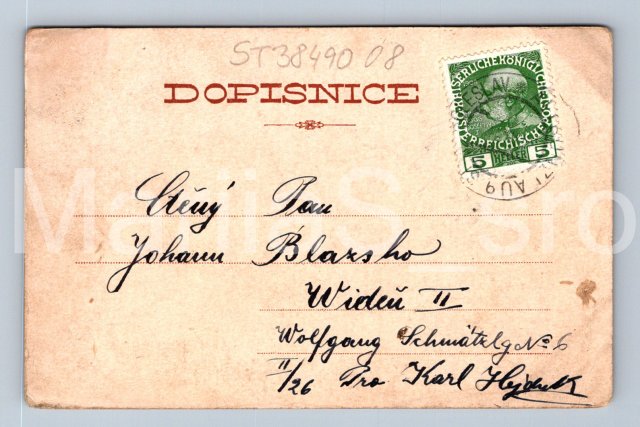 ST38490 08
DOPISNICE
KAISERLICHEKÖNIGLICHE
ÖSTERREICHISCHE
5 HELLER 5
ESLAV
AU
Ctěný Pan
Johann Blazsho
Wideň II
Wolfgang Schmätzlg No 6
II/26 Pro Karl Hejduk